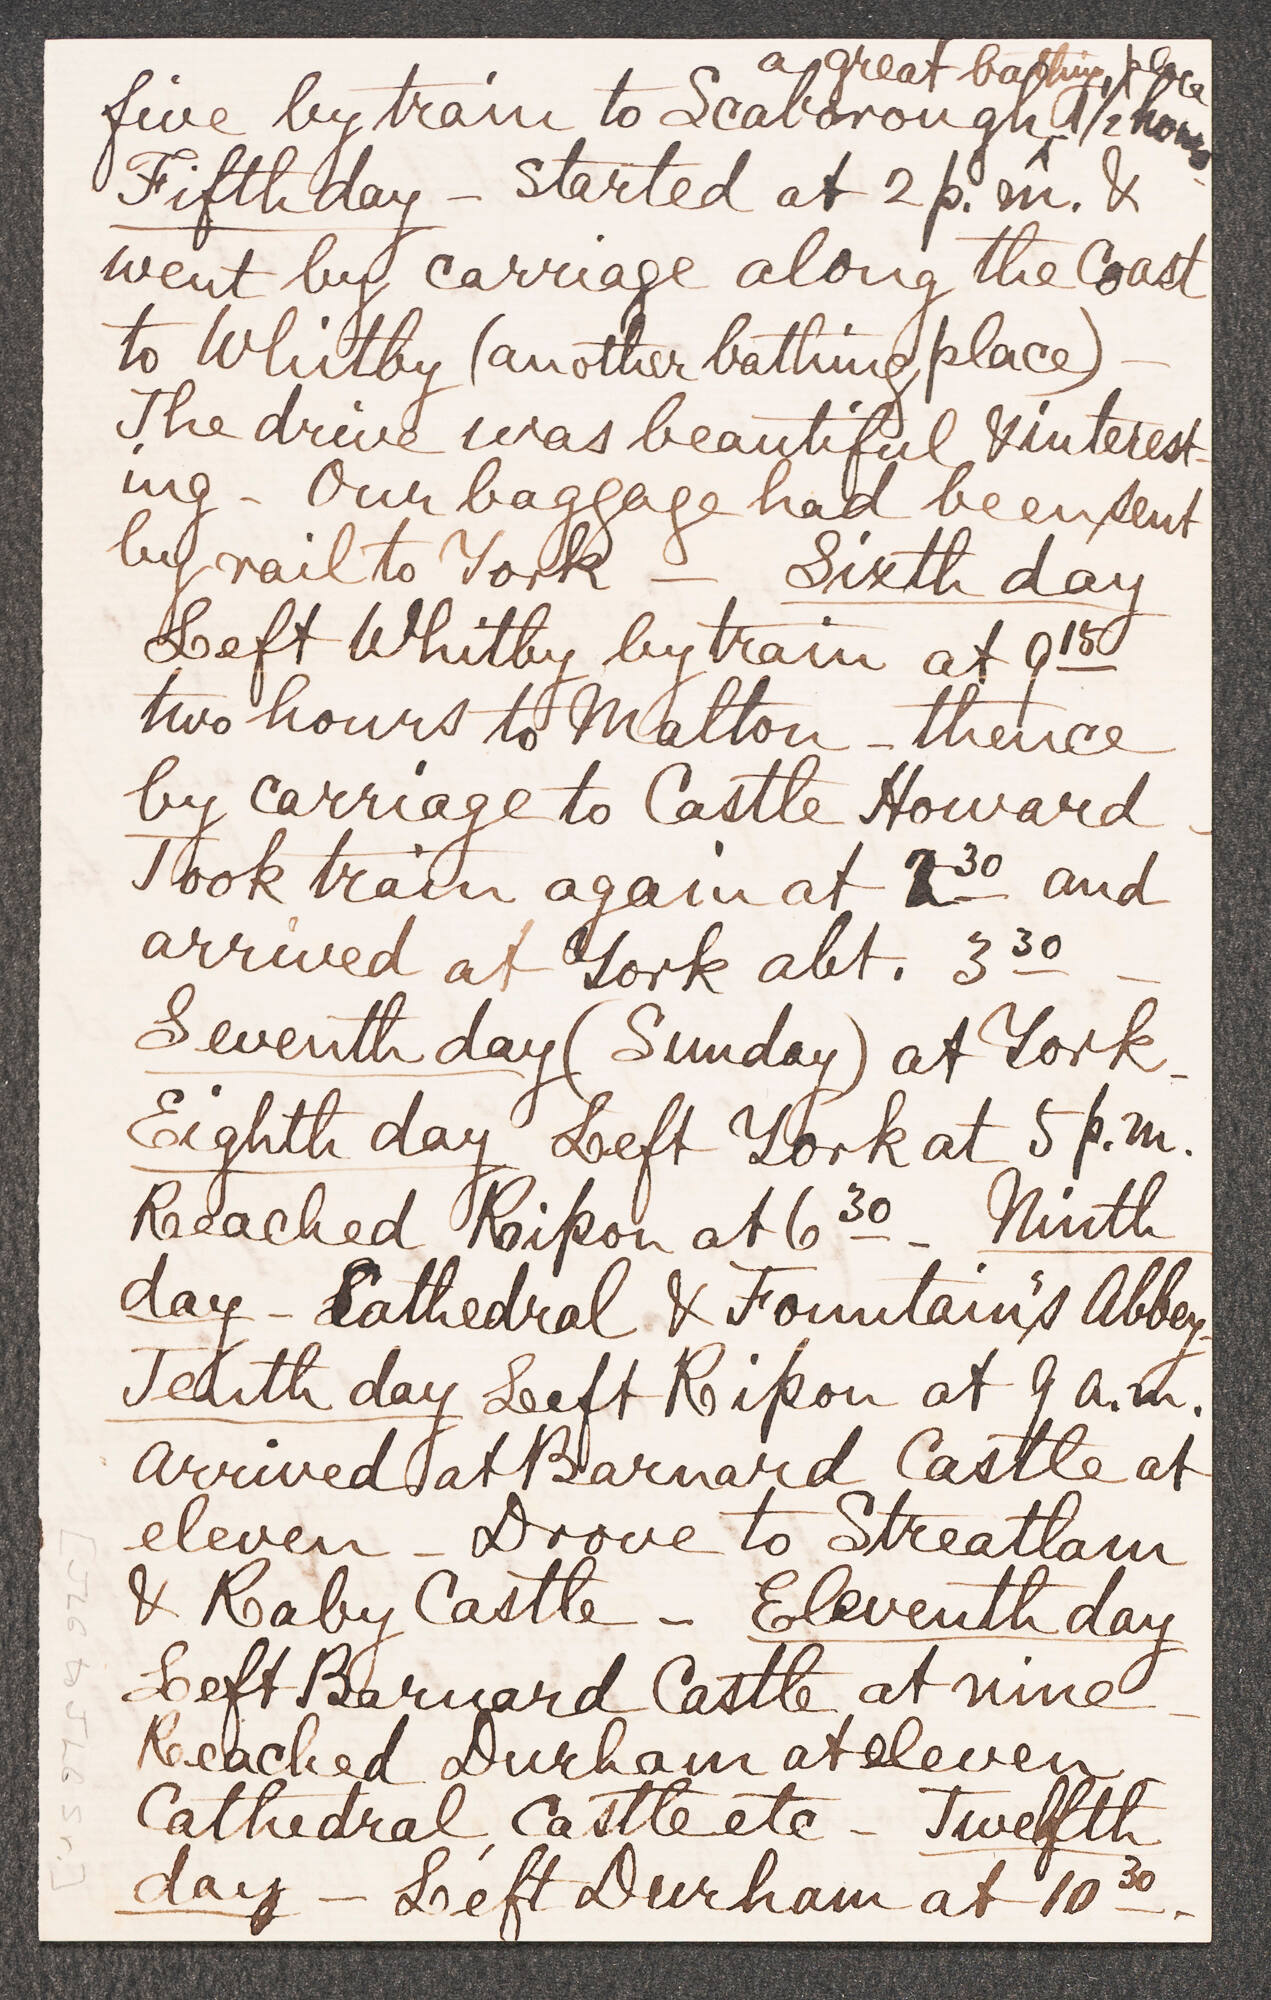 a great bathing place
five by train to Scaborough ^ 1 1/2 hours -
Fifth day - started at 2 p.m. &
went by carriage along the Coast
to Whitby (another bathing place) -
The drive was beautiful & interest-
ing - Our baggage had been sent
by rail to York - Sixth day
Left Whitby by train at 9 15
two hours to Malton - thence
by carriage to Castle Howard -
Took train again at 2 30 and
arrived at York abt. 3 30 -
Seventh day (Sunday) at York -
Eighth day Left York at 5 p.m.
Reached Ripon at 6 30 - Ninth
day - Cathedral & Fountain's Abbey -
Tenth day Left Ripon at 9 a.m.
arrived at Barnard Castle at
eleven - Drove to Streatlam
& Raby Castle - Eleventh day
Left Barnard Castle at nine -
Reached Durham at eleven
Cathedral, Castle etc - Twelfth
day - Left Durham at 10 30 -